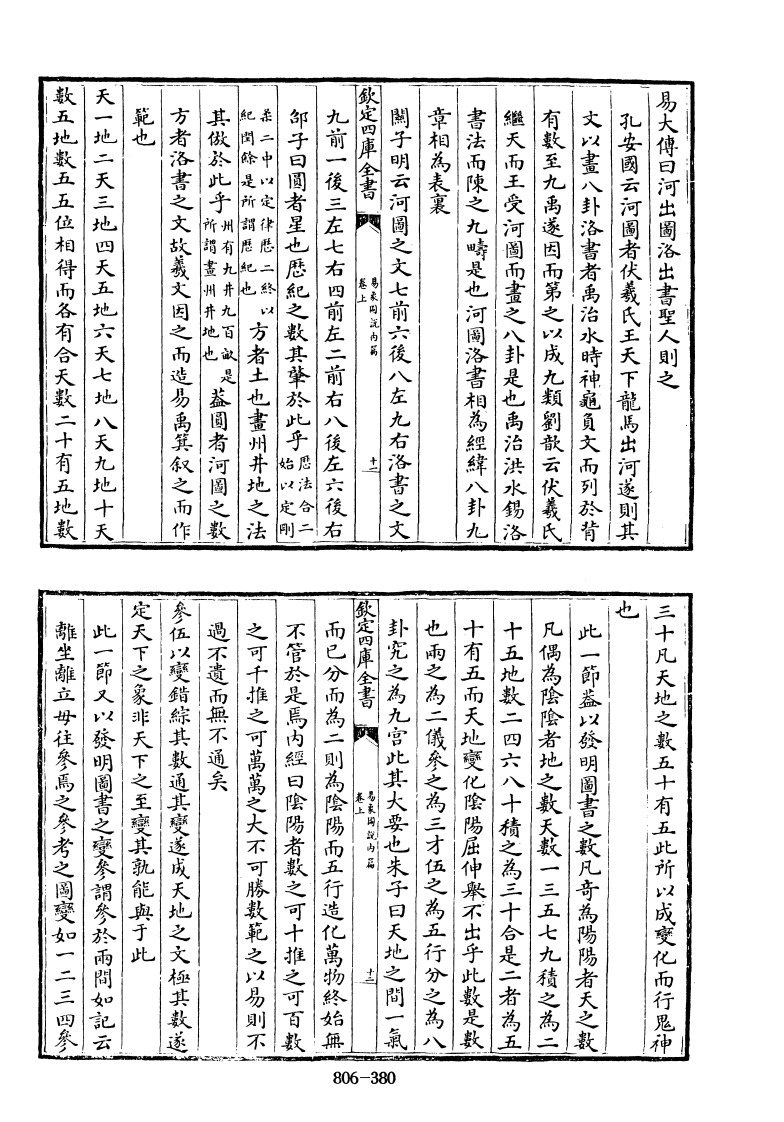 易大傳曰河出圖洛出書聖人則之
孔安國云河圖者伏羲氏王天下龍馬出河遂則其
文以畫八卦洛書者禹治水時神龜負文而列於背
有數至九禹遂因而第之以成九類劉歆云伏羲氏
繼天而王受河圖而畫之八卦是也禹治洪水錫洛
書法而陳之九疇是也河圖洛書相為經緯八卦九
章相為表裏
欽定四庫全書
易象圖說內篇
卷上
十一
關子明云河圖之文七前六後八左九右洛書之文
九前一後三左七右四前左二前右八後左六後右
邵子曰圓者星也厯紀之數其肇於此乎厯法合二始以定剛
柔二中以定律厯二終以紀閏餘是所謂厯紀也方者土也畫州井地之法
其倣於此乎州有九井九百畝是所謂畫州井地也葢圓者河圖之數
方者洛書之文故羲文因之而造易禹箕叙之而作
範也
天一地二天三地四天五地六天七地八天九地十天
數五地數五五位相得而各有合天數二十有五地數
三十凡天地之數五十有五此所以成變化而行鬼神
也
此一節葢以發明圖書之數凡奇為陽陽者天之數
凡偶為陰陰者地之數天數一三五七九積之為二
十五地數二四六八十積之為三十合是二者為五
十有五而天地變化陰陽屈伸舉不出乎此數是數
也兩之為二儀參之為三才伍之為五行分之為八
卦究之為九宫此其大要也朱子曰天地之間一氣
欽定四庫全書
易象圖說內篇
卷上
十二
而已分而為二則為陰陽而五行造化萬物終始無
不管於是焉內經曰陰陽者數之可十推之可百數
之可千推之可萬萬之大不可勝數範之以易則不
過不遺而無不通矣
參伍以變錯綜其數通其變遂成天地之文極其數遂
定天下之象非天下之至變其孰能與于此
此一節又以發明圖書之變參謂參於兩間如記云
離坐離立毋往參焉之參考之圖變如一二三四參
806-380